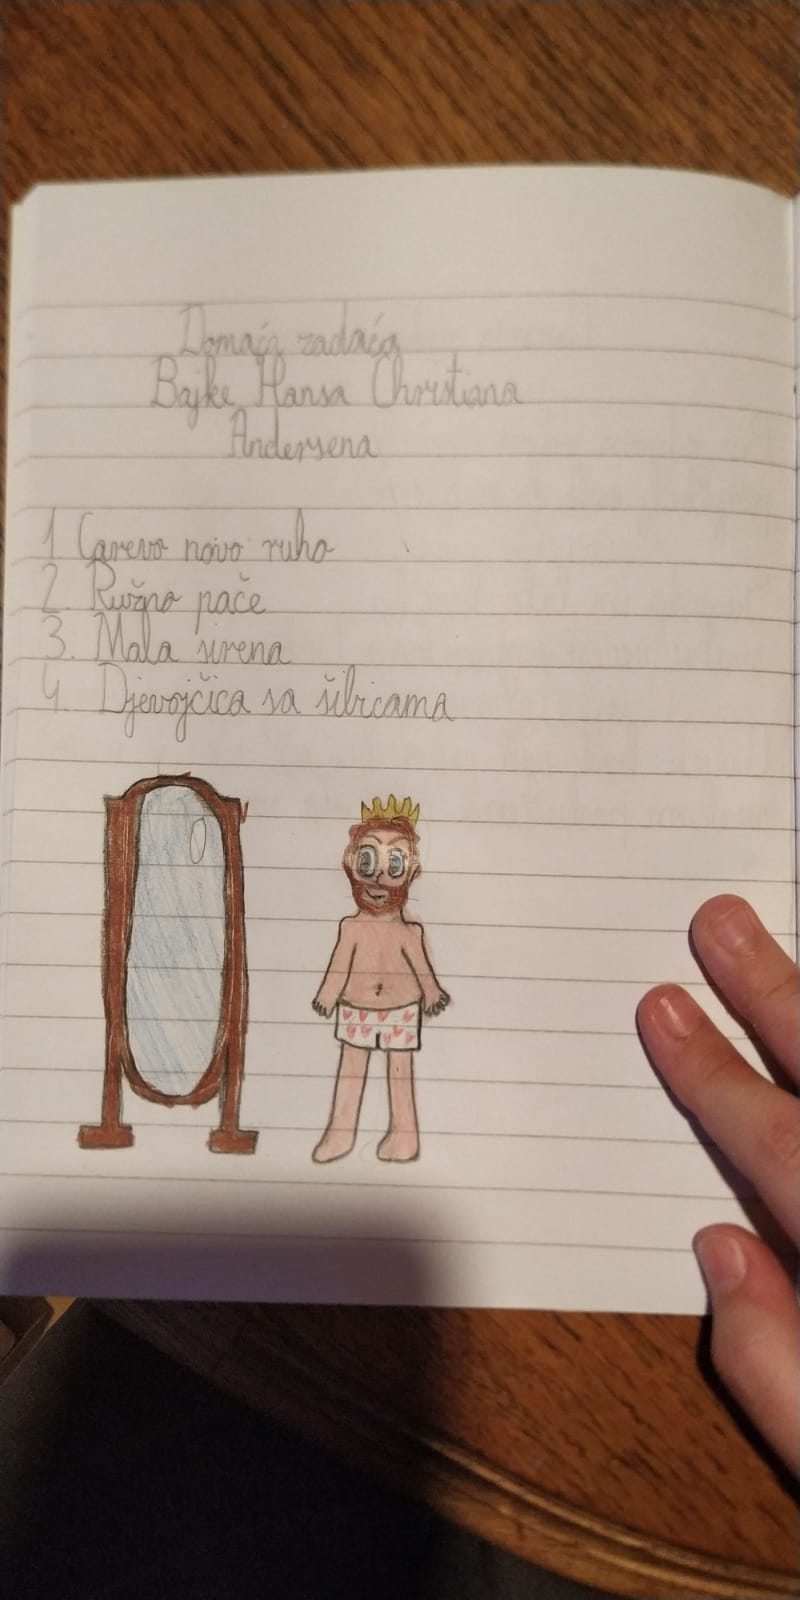 Domaća zadaća
Bajke Hansa Christiana
Andersena
1 Carevo novo ruho
2. Ružno pače
3. Mala sirena
4 Djevojčica sa šibicama